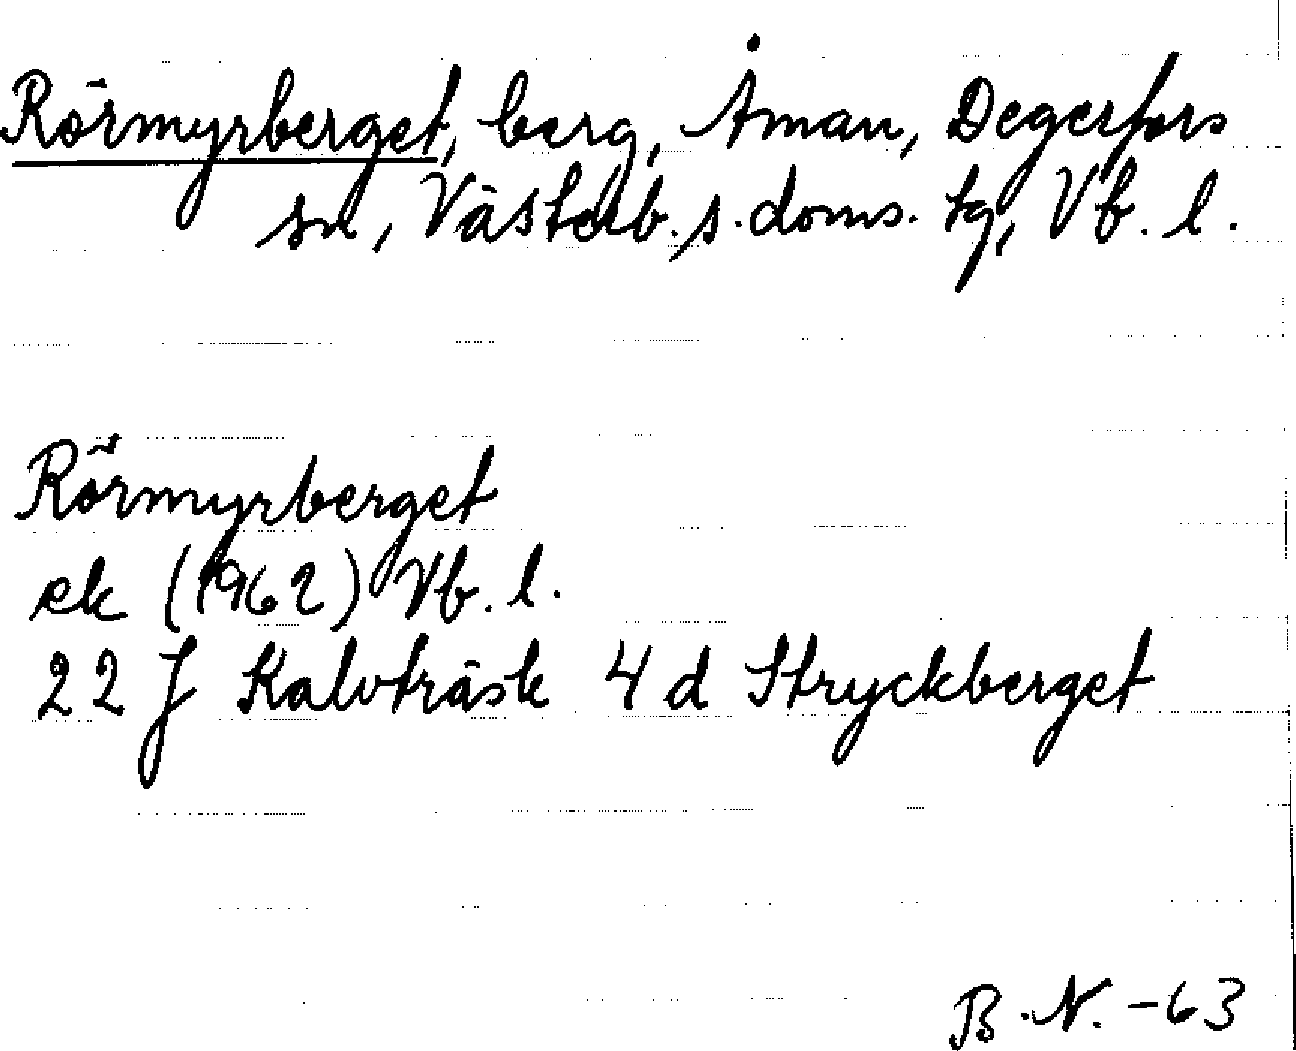 Rörmyrberget, berg, Åman, Degerfors
sn, Västerb. s. doms. tg, Vb. l.
Rörmyrberget
ek (1962) Vb. l.
22 J Kalvträsk 4 d Stryckberget
B. N. -63